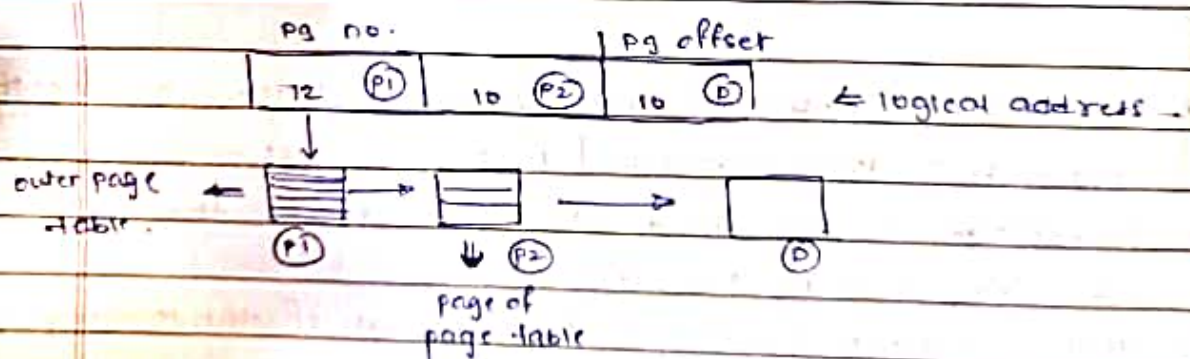 pg no. pg offset
12 P1 10 P2 10 D ⇐ logical address.
outer page
table.
P1 P2 D
page of
page table